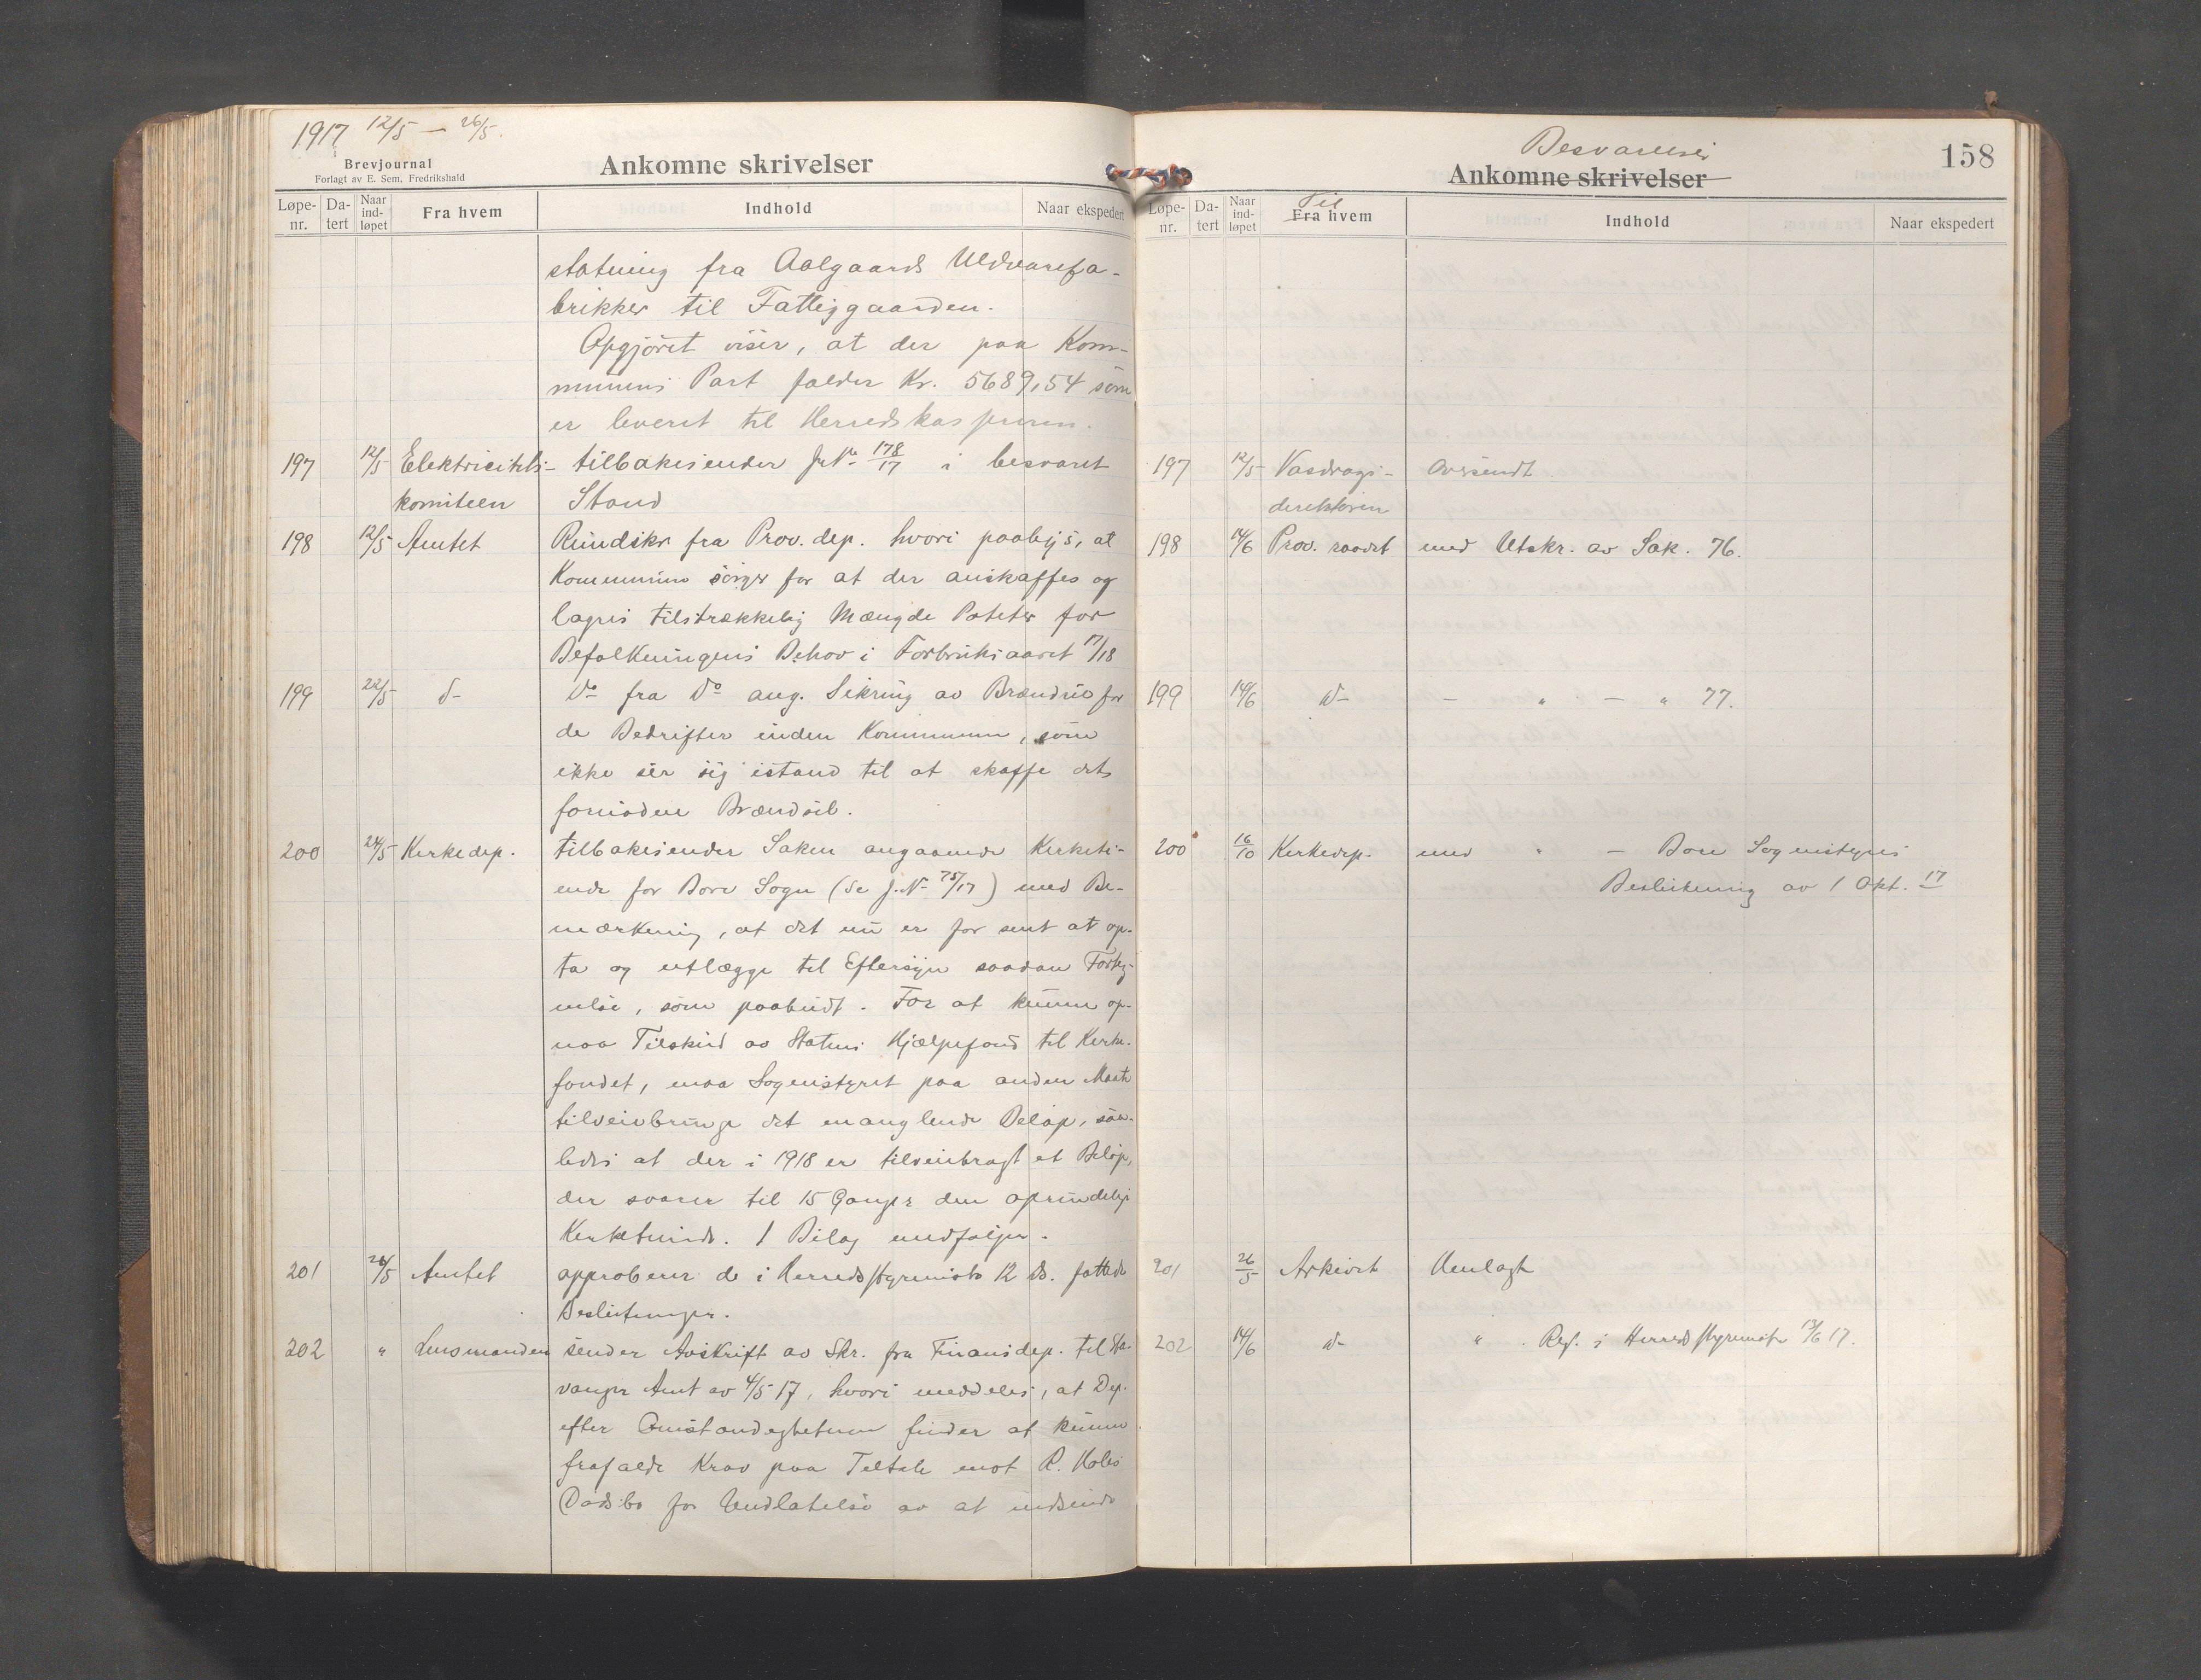 1917 12/5 — 26/5.
Brevjournal
Forlagt av E. Sem, Fredrikshald
Ankomne skrivelser
Løpe-nr. Da-tert Naar ind-løpet Fra hvem Indhold Naar ekspedert
statning fra Aalgaards Uldvarefa-
brikker til Fattiggaarden.
Opgjöret viser, at der paa Kom-
munens Part falder Kr. 5689,54 som
er leveret til Herredskasseren.
197 12/5 Elektricitets- tilbakesender J.No 178/17 i besvaret
komiteen Stand
198 12/5 Amtet Rundskr fra Prov. dep. hvori paalegs, at
Kommunen sörger for at der anskaffes og
lagres tilstrækkelig Mængde Poteter for
Befolkningens Behov i Forbruksaaret 17/18
199 22/5 d- Do fra Do ang. Sikring av Brændsel for
de Bedrifter inden Kommunen, som
ikke ser sig istand til at skaffe det
fornödne Brændsel.
200 24/5 Kirkedep. tilbakesender Saken angaaende Kirketi-
ende for Bore Sogn (se J.No 75/17) med Be-
merkning, at det nu er for sent at op-
ta og utlægge til Eftersyn saadan Forteg-
nelse, som paabudt. For at kunne op-
naa Tilskud av Statens Hjælpefond til Kirke-
fondet, maa Sognestyret paa anden Maate
tilveiebringe det manglende Belöp, saa-
ledes at der i 1918 er tilveiebragt et Belöp,
der svarer til 15 Ganger den oprindelige
Kirketiende. 1 Bilag medfölger.
201 26/5 Amtet approberer de i Herredsstyremöte 12 ds. fattede
Beslutninger.
202 " Lensmanden sender Avskrift av Skr. fra Finansdep. til Sta-
vanger Amt av 4/5 17, hvori meddeles, at Dep.
efter Omstændighetene finder at kunne
frafalde Krav paa Tiltale mot R. Holes
Dödsbo for Undlatelse av at indsende
Besvarelser
Ankomne skrivelser
158
Løpe-nr. Da-tert Naar ind-løpet Til Fra hvem Indhold Naar ekspedert
197 12/5 Vasdrags- Oversendt
direktören
198 14/6 Prov. raadet med Utskr. av Sak. 76.
199 14/6 d- — " — " 77.
200 16/10 Kirkedep. med " — Bore Sognestyres
Beslutning av 1 Okt. 17
201 26/5 Arkivet Henlagt
202 14/6 d- " Ref. i Herredsstyremöte 13/6 17.